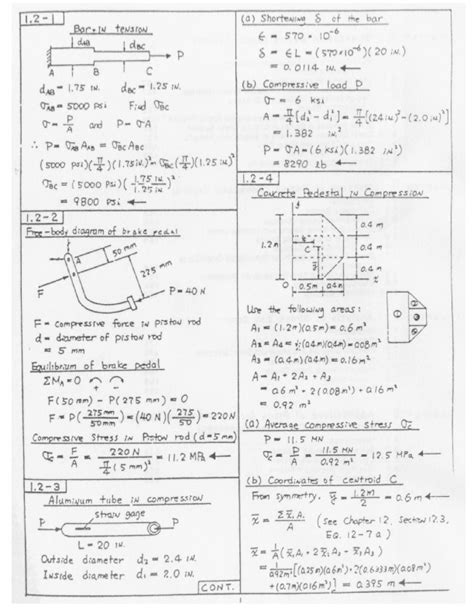 1.2-1
Bar in tension
dAB dBC
P
A B C
dAB = 1.75 in. dBC = 1.25 in.
σAB = 5000 psi Find σBC
σ = P/A and P = σA
∴ P = σAB AAB = σBC ABC
(5000 psi)(π/4)(1.75 in.)² = σBC (π/4)(1.25 in.)²
σBC = (5000 psi)(1.75 in./1.25 in.)²
= 9800 psi ←
1.2-2
Free-body diagram of brake pedal
A
50 mm
225 mm
F
P = 40 N
F = compressive force in piston rod
d = diameter of piston rod
= 5 mm
Equilibrium of brake pedal
ΣMA = 0
F(50 mm) - P(275 mm) = 0
F = P(275 mm/50 mm) = (40 N)(275/50) = 220 N
Compressive stress in piston rod (d = 5 mm)
σc = F/A = 220 N / π/4 (5 mm)² = 11.2 MPa ←
1.2-3
Aluminum tube in compression
strain gage
P P
L = 20 in.
Outside diameter d2 = 2.4 in.
Inside diameter d1 = 2.0 in.
CONT.
(a) Shortening δ of the bar
ε = 570 × 10⁻⁶
δ = εL = (570×10⁻⁶)(20 in.)
= 0.0114 in. ←
(b) Compressive load P
σ = 6 ksi
A = π/4 [d2² - d1²] = π/4 [(2.4 in.)² - (2.0 in.)²]
= 1.382 in.²
P = σA = (6 ksi)(1.382 in.²)
= 8290 lb ←
1.2-4
Concrete Pedestal in Compression
1.2 m
C
0.4 m
0.4 m
0.4 m
0 0.5m 0.4m
Use the following areas:
A1 = (1.2m)(0.5m) = 0.6 m²
A2 = A4 = ½(0.4m)(0.4m) = 0.08 m²
A3 = (0.4m)(0.4m) = 0.16 m²
A = A1 + 2A2 + A3
= 0.6 m² + 2(0.08 m²) + 0.16 m²
= 0.92 m²
(a) Average compressive stress σc
P = 11.5 MN
σc = P/A = 11.5 MN / 0.92 m² = 12.5 MPa ←
(b) Coordinates of centroid C
From symmetry, ȳ = 1.2m/2 = 0.6 m ←
x̄ = Σx̄iAi / A (see Chapter 12, Section 12.3,
Eq. 12-7a)
x̄ = 1/A (x̄1A1 + 2x̄2A2 + x̄3A3)
= 1/0.92m² [(0.25m)(0.6m²) + 2(0.6333m)(0.08m²)
+ (0.7m)(0.16m²)] = 0.395 m ←
1